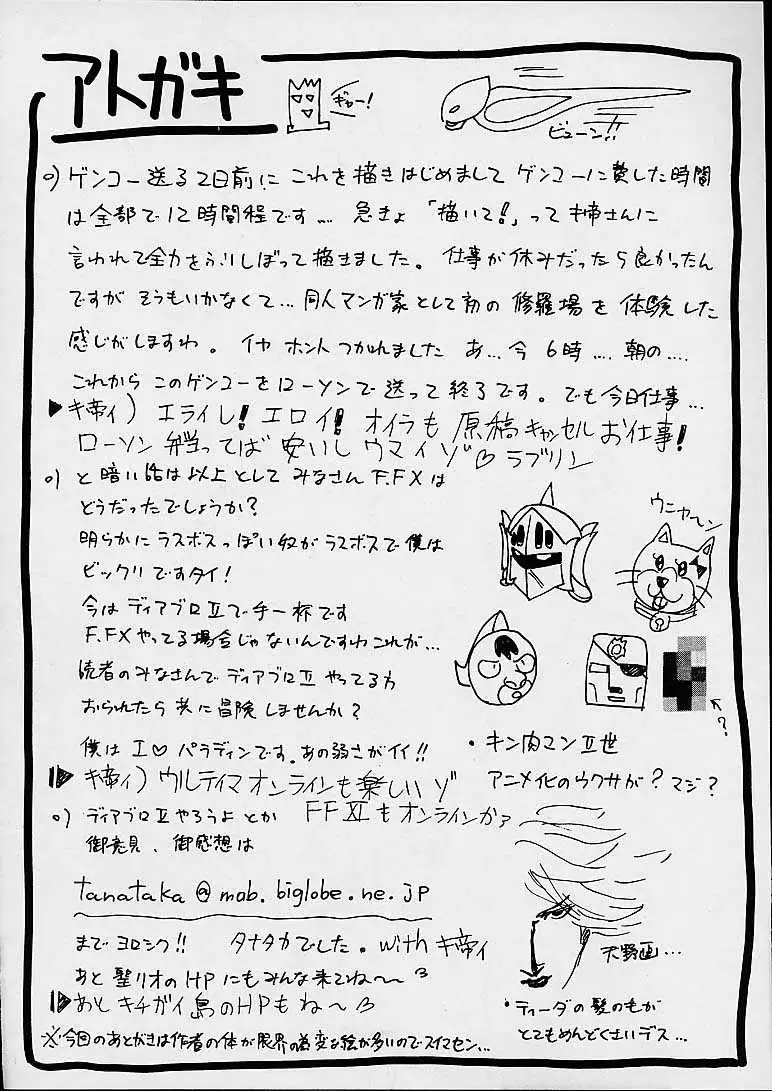 アトガキ
ギャー!
ビューン!!
○) ゲンコー送る2日前に これを描きはじめまして ゲンコーに費した時間
は全部で12時間程です… 急きょ「描いて!」ってキ帝さんに
言われて全力をふりしぼって描きました。仕事が休みだったら良かったん
ですが そうもいかなくて…同人マンガ家として初の修羅場を体験した
感じがしますわ。 イヤ ホント つかれました あ…今 6時…朝の…
これからこのゲンコーをローソンで送って終了です。でも今日仕事…
▶キ帝ィ) エライし! エロイ! オイラも原稿キャンセルお仕事!
ローソン弁当ってば 安いし ウマイゾ♡ラブリン
○) と暗い話は以上として みなさん F.FXは
どうだったでしょうか?
明らかにラスボスっぽい奴がラスボスで僕は
ビックリですタイ!
今はディアブロⅡで手一杯です
F.FXやってる場合じゃないんですわこれが…
読者のみなさんでディアブロⅡやってる方
おられたら共に冒険しませんか?
僕は I♡パラディンです。あの弱さがイイ!!
▶キ帝ィ) ウルティマオンラインも楽しいゾ
ウニャーン
?
・キン肉マンⅡ世
アニメ化のウワサが?マジ?
○) ディアブロⅡやろうよ とか FFXIもオンラインかァ
御意見、御感想は
tanataka@mob.biglobe.ne.jp
までヨロシク!! タナタカでした。with キ帝ィ
あと 聖リオのHPにもみんな来てね〜
▶あと キチガイ島のHPもね〜
天野画…
・ティーダの髪のもが
とてもめんどくさいデス…
※今回のあとがきは作者の体が限界の為変な絵が多いのでスイマセン…